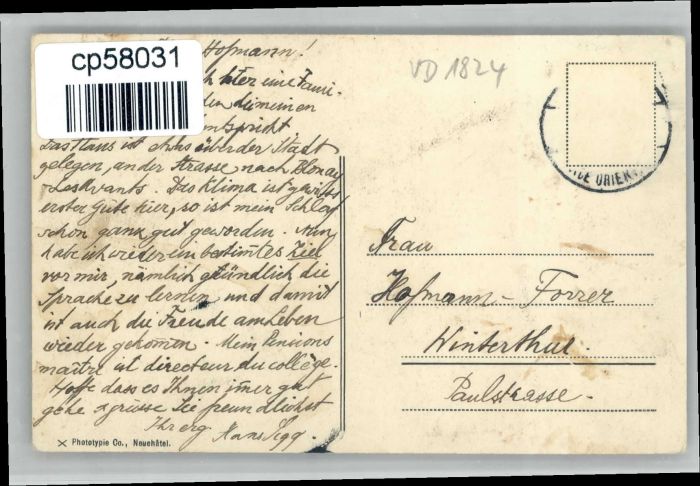 cp58031
Hofmann!
VD 1824
hier eine Fami-
den meinen
entspricht
Das Haus ist etwas über der Stadt
gelegen, an der Strasse nach Blonay
Das Klima ist
erster Güte hier, so ist mein Schlaf
schon ganz gut geworden. Nun
habe ich wieder ein bestimtes Ziel
vor mir, nämlich gründlich die
Sprache zu lernen und damit
ist auch die Freude am Leben
wieder gekommen. Mein Pensions
maître ist directeur du collège.
Hoffe dass es Ihnen imer gut
gehe & grüsse Sie freundlichst
Ihr erg Hans Sigg.
Frau
Hofmann-Forrer
Winterthur.
Paulstrasse.
Phototypie Co., Neuchâtel.